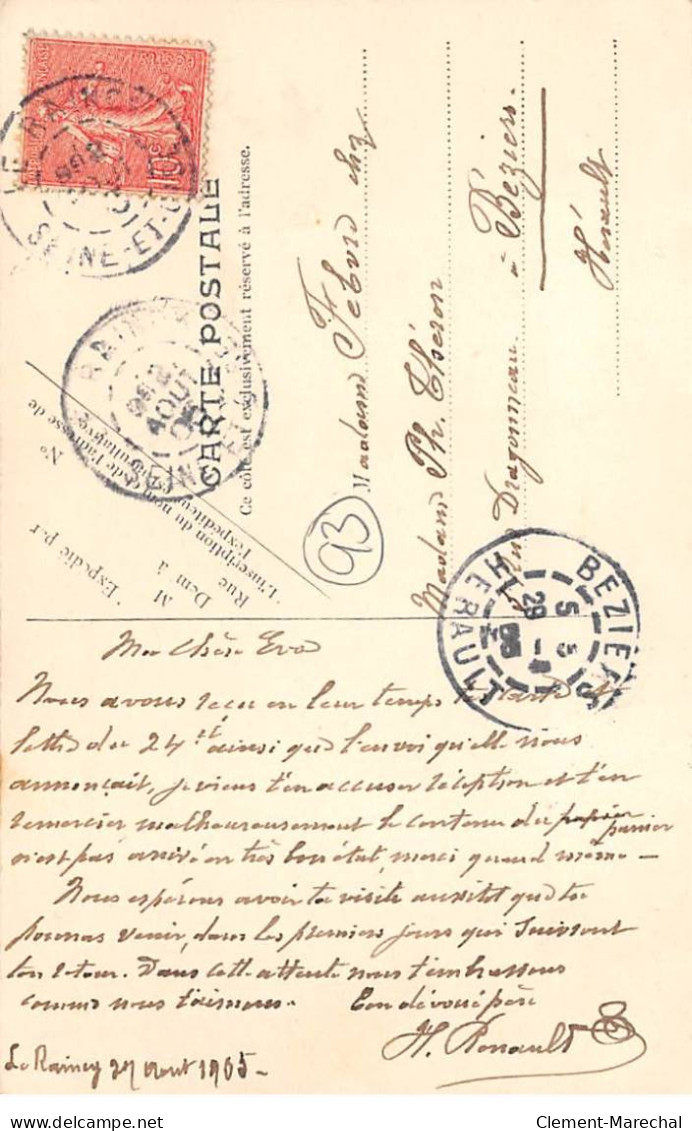 CARTE POSTALE
Ce côté est exclusivement réservé à l'adresse.
Madame Febvre chez
Madame Ph. Théron
Dragonneau à Béziers.
Hérault
93
SEINE-ET-
BEZIERS
HERAULT
Expédié par
M
Demt à
Rue
No
L'inscription du nom de l'adresse de
l'expéditeur
Ma Chère Eva
Nous avons reçu en leur temps ta carte
lettre du 24 et ainsi que l'envoi qu'elle nous
annonçait, je viens t'en accuser réception et t'en
remercier malheureusement le contenu du papier panier
n'est pas arrivé en très bon état, merci quand même —
Nous espérons avoir ta visite aussitôt que tu
pourras venir, dans les premiers jours qui suivront
ton retour. Dans cette attente nous t'embrassons
comme nous t'aimons. Ton dévoué père
H. Renault
Le Raincy 27 Aout 1905 -
Clement-Marechal